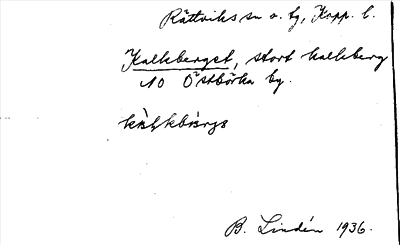 Rättviks sn o. tg, Kopp. l.
Kalkberget, stort kalkberg
NO Östbjörka by.
B. Lindén 1936.